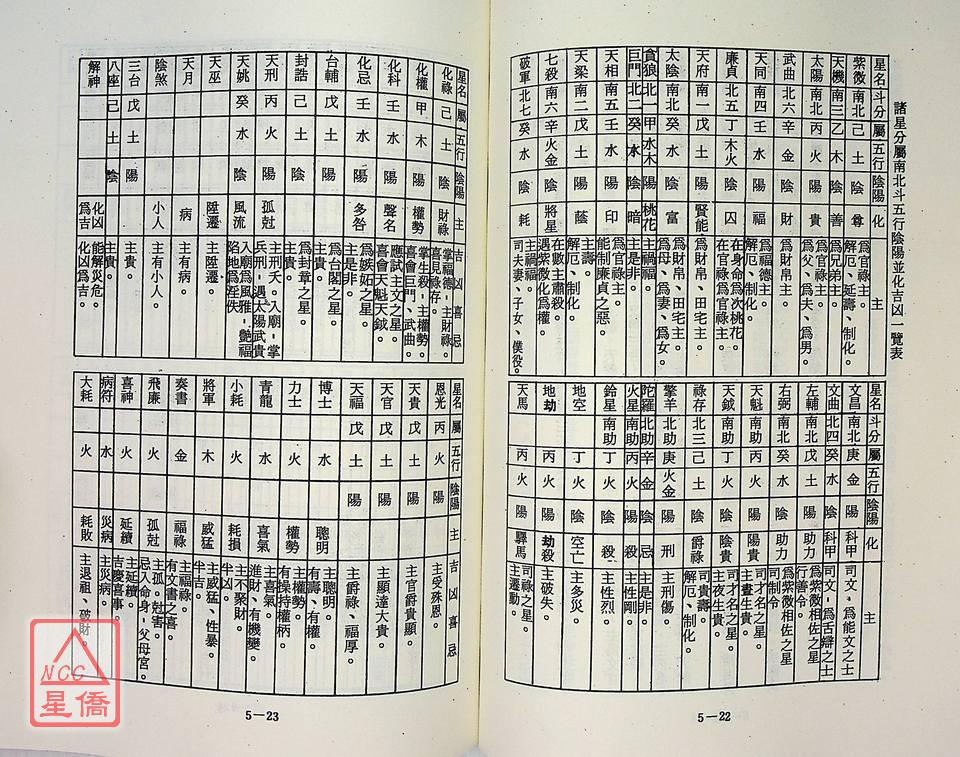 諸星分屬南北斗五行陰陽並化吉凶一覽表
星名 斗分 屬 五行 陰陽 化 主
紫微 南北 己 土 陰 尊 爲官祿主。解厄、延壽、制化。
天機 南三 乙 木 陰 善 爲兄弟主。
太陽 南北 丙 火 陽 貴 爲官祿主。爲父、爲夫、爲男。
武曲 北六 辛 金 陰 財 爲財帛主。
天同 南四 壬 水 陽 福 爲福德主。解厄、制化。
廉貞 北五 丁 木火 陰 囚 在官祿爲官祿主。在身命爲次桃花。
天府 南一 戊 土 陽 賢能 爲財帛、田宅主。
太陰 南北 癸 水 陰 富 爲財帛、田宅主。爲母、爲妻、爲女。
貪狼 北一 甲 水木 陽 桃花 主禍福。
巨門 北二 癸 水 陰 暗 主是非。
天相 南五 壬 水 陽 印 爲官祿主。能制廉貞之惡。
天梁 南二 戊 土 陽 蔭 主壽。解厄、制化。
七殺 南六 辛 火金 陰 將星 在數主肅殺。遇紫微化爲權。
破軍 北七 癸 水 陰 耗 主禍福。司夫妻、子女、僕役。
星名 斗分 屬 五行 陰陽 化 主
文昌 南北 庚 金 陽 科甲 司文，爲能文之士
文曲 北四 癸 水 陰 科甲 司文，爲舌辯之士
左輔 南北 戊 土 陽 助力 爲紫微相佐之星 行善令。
右弼 南北 癸 水 陰 助力 爲紫微相佐之星 司制令
天魁 南助 丙 火 陽 陽貴 司才名之星。主晝生貴。
天鉞 南助 丁 火 陰 陰貴 司才名之星。主夜生貴。
祿存 北三 己 土 陰 爵祿 司貴壽。解厄、制化。
擎羊 北助 庚 火金 陽 刑 主刑傷。
陀羅 北助 辛 金 陰 忌 主是非。
火星 南助 丙 火 陽 殺 主性剛。
鈴星 南助 丁 火 陰 殺 主性烈。
地空 丁 火 陰 空亡 主多災。
地劫 丙 火 陽 劫殺 主破失。
天馬 丙 火 陽 驛馬 司祿之星。主遷動。
5－22
星名 屬 五行 陰陽 主 吉凶喜忌
化祿 己 土 陰 財祿 掌福德，主財祿 喜見祿存。
化權 甲 木 陽 權勢 掌生殺，主權勢 喜會巨門、武曲。
化科 壬 水 陽 聲名 應試主文之星。喜會天魁天鉞
化忌 壬 水 陽 多咎 爲嫉妬之星。主是非。
台輔 戊 土 陽 爲台閣之星。主貴。
封誥 己 土 陰 爲封章之星。主貴。
天刑 丙 火 陽 孤尅 主刑夭。入廟，掌兵刑，遇太陽武貴
天姚 癸 水 陰 風流 入廟爲風雅，艷福 陷地爲淫佚
天巫 陞遷 主陞遷。
天月 病 主有病。
陰煞 小人 主有小人。
三台 戊 土 陽 主貴。
八座 己 土 陰 主貴。
解神 化凶爲吉 能解災危。化凶爲吉。
星名 屬 五行 陰陽 主 吉凶喜忌
恩光 丙 火 陽 主受殊恩。
天貴 戊 土 陽 主官爵貴顯。
天官 戊 土 陽 主顯達大貴。
天福 戊 土 陽 主爵祿、福厚。
博士 水 聰明 主聰明。有壽、有權
力士 火 權勢 主權勢。有操持權柄
青龍 水 喜氣 主喜氣。進財、有機變。
小耗 火 耗損 主不聚財。半凶。
將軍 木 威猛 主威猛、性暴。半吉。
奏書 金 福祿 主福祿。有文書之喜
飛廉 火 孤尅 主孤。尅害。忌入命身，父母宮
喜神 火 延續 主延續。吉慶喜事。
病符 水 災病 主災病。
大耗 火 耗敗 主退祖、破財。
5－23
NCC
星僑